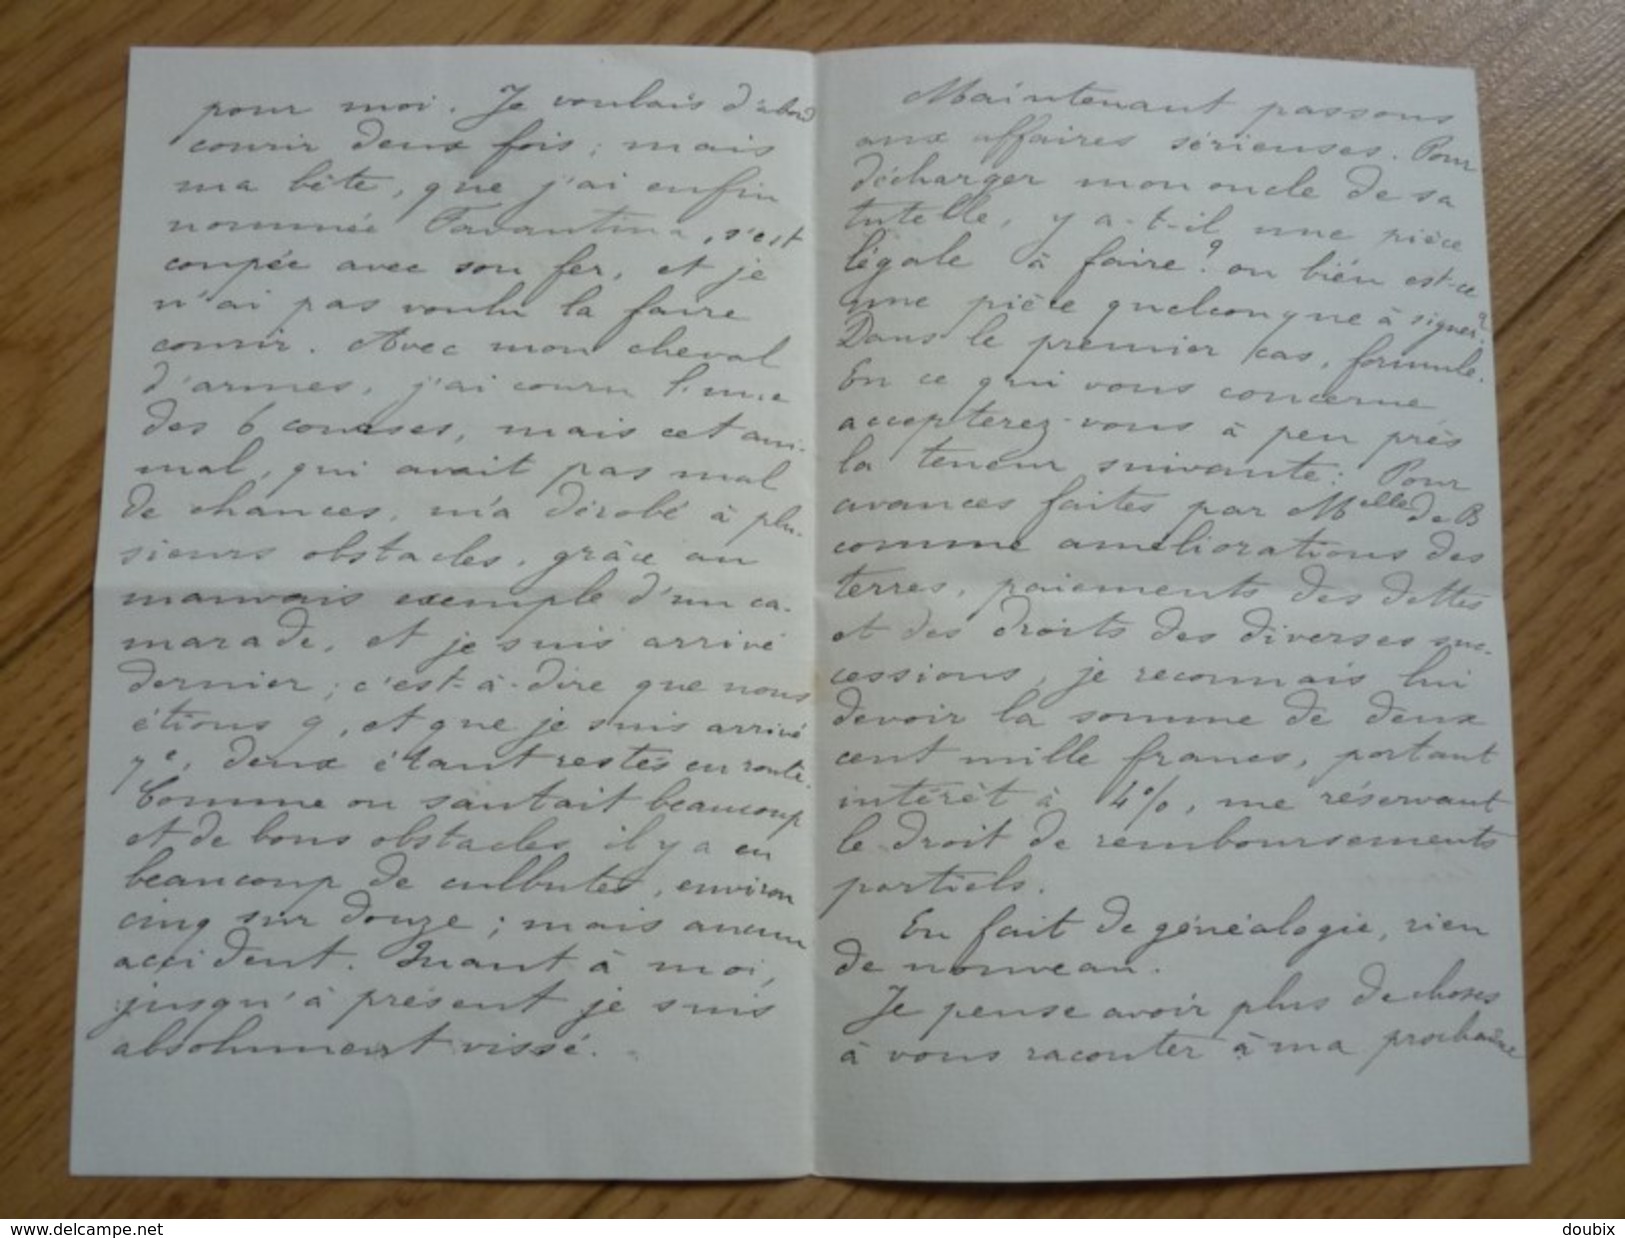 pour moi. Je voulais d'abord
courir deux fois ; mais
ma bête, que j'ai enfin
nommée Tarantina, s'est
coupée avec son fer, et je
n'ai pas voulu la faire
courir. Avec mon cheval
d'armes, j'ai couru l'une
des 6 courses, mais cet ani-
mal, qui avait pas mal
de chances, m'a dérobé à plu-
sieurs obstacles, grâce au
mauvais exemple d'un ca-
marade, et je suis arrivé
dernier ; c'est-à-dire que nous
étions 9, et que je suis arrivé
7e, deux étant restés en route.
Comme on sautait beaucoup
et de bons obstacles il y a eu
beaucoup de culbutes, environ
cinq sur douze ; mais aucun
accident. Quant à moi,
jusqu'à présent je suis
absolument vissé.
Maintenant passons
aux affaires sérieuses. Pour
décharger mon oncle de sa
tutelle, y a-t-il une pièce
légale à faire ? ou bien est-ce
une pièce quelconque à signer ?
Dans le premier cas, formule.
En ce qui vous concerne
accepterez-vous à peu près
la teneur suivante : Pour
avances faites par Melle de B
comme améliorations des
terres, paiements des dettes
et des droits des diverses suc-
cessions, je reconnais lui
devoir la somme de deux
cent mille francs, portant
intérêt à 4%, me réservant
le droit de remboursements
partiels.
En fait de généalogie, rien
de nouveau.
Je pense avoir plus de choses
à vous raconter à ma prochaine
www.delcampe.net
doubix